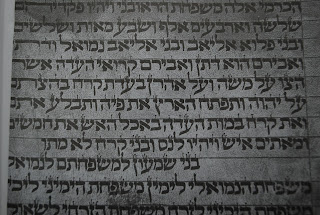 הכרמי אלה משפחת הראובני ויהיו פקדיהם
שלשה וארבעים אלף ושבע מאות ושלשים
ובני פלוא אליאב ובני אליאב נמואל ודתן
ואבירם הוא דתן ואבירם קרואי העדה אשר
הצו על משה ועל אהרן בעדת קרח בהצתם
על יהוה ותפתח הארץ את פיה ותבלע אתם
ואת קרח במות העדה באכל האש את חמשים
ומאתים איש ויהיו לנס ובני קרח לא מתו
בני שמעון למשפחתם לנמואל
משפחת הנמואלי לימין משפחת הימיני ליכין
משפחת היכיני לזרח משפחת הזרחי לשאול